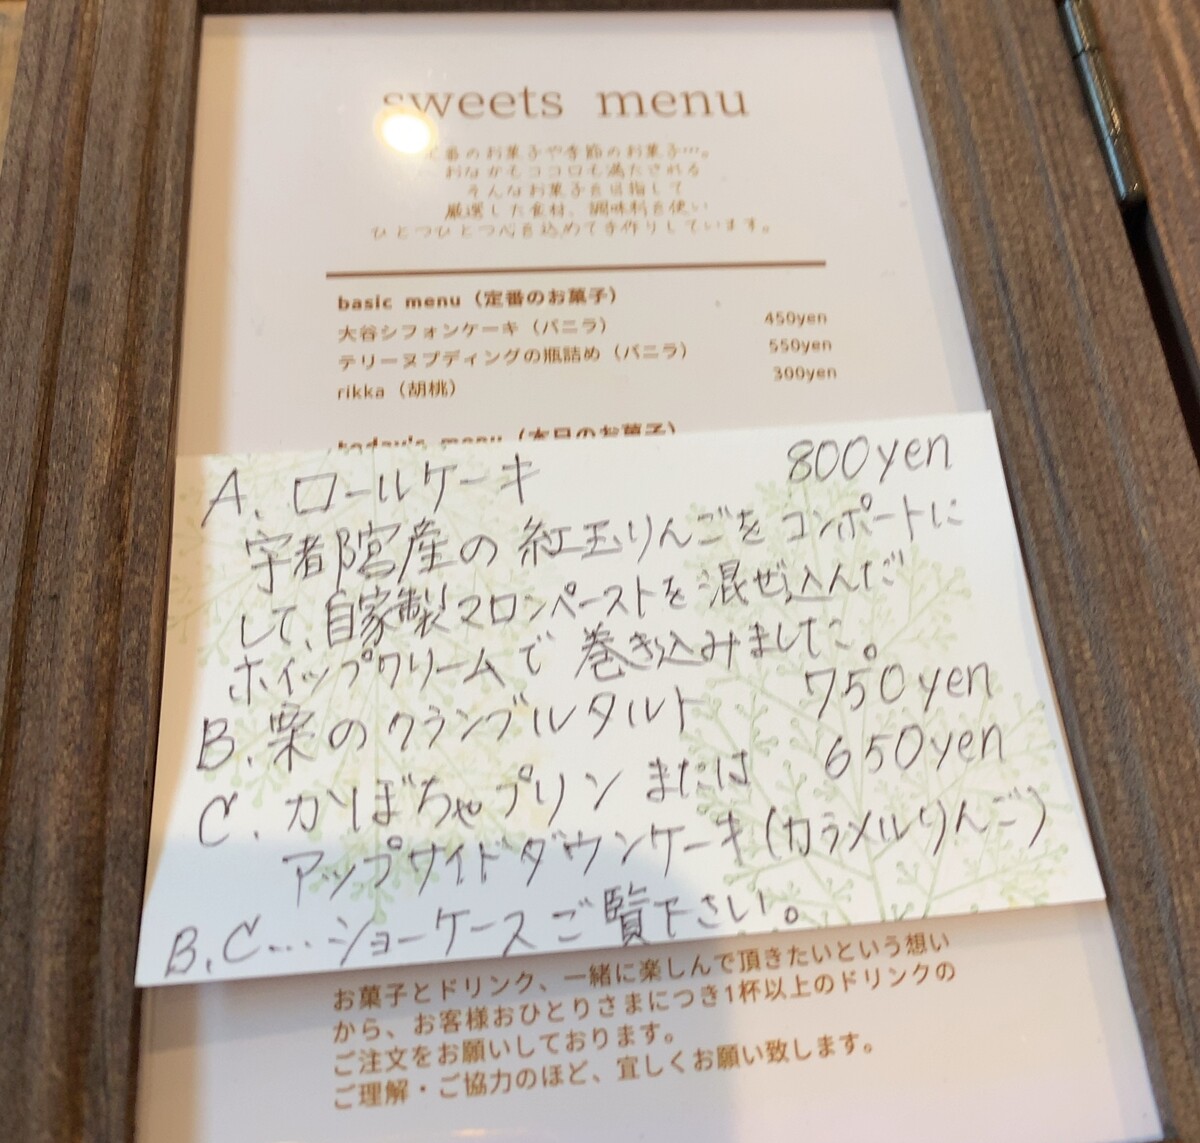 sweets menu
定番のお菓子や季節のお菓子…。
おなかもココロも満たされる
そんなお菓子を目指して
厳選した食材、調味料を使い
ひとつひとつ心を込めて手作りしています。
basic menu（定番のお菓子）
大谷シフォンケーキ（バニラ） 450yen
テリーヌプディングの瓶詰め（バニラ） 550yen
rikka（胡桃） 300yen
today's menu（本日のお菓子）
A. ロールケーキ 800yen
宇都宮産の紅玉りんごをコンポートに
して、自家製マロンペーストを混ぜ込んだ
ホイップクリームで巻き込みました。
B. 栗のクランブルタルト 750yen
C. かぼちゃプリンまたは 650yen
アップサイドダウンケーキ(カラメルりんご)
B.C…ショーケースご覧下さい。
お菓子とドリンク、一緒に楽しんで頂きたいという想い
から、お客様おひとりさまにつき1杯以上のドリンクの
ご注文をお願いしております。
ご理解・ご協力のほど、宜しくお願い致します。